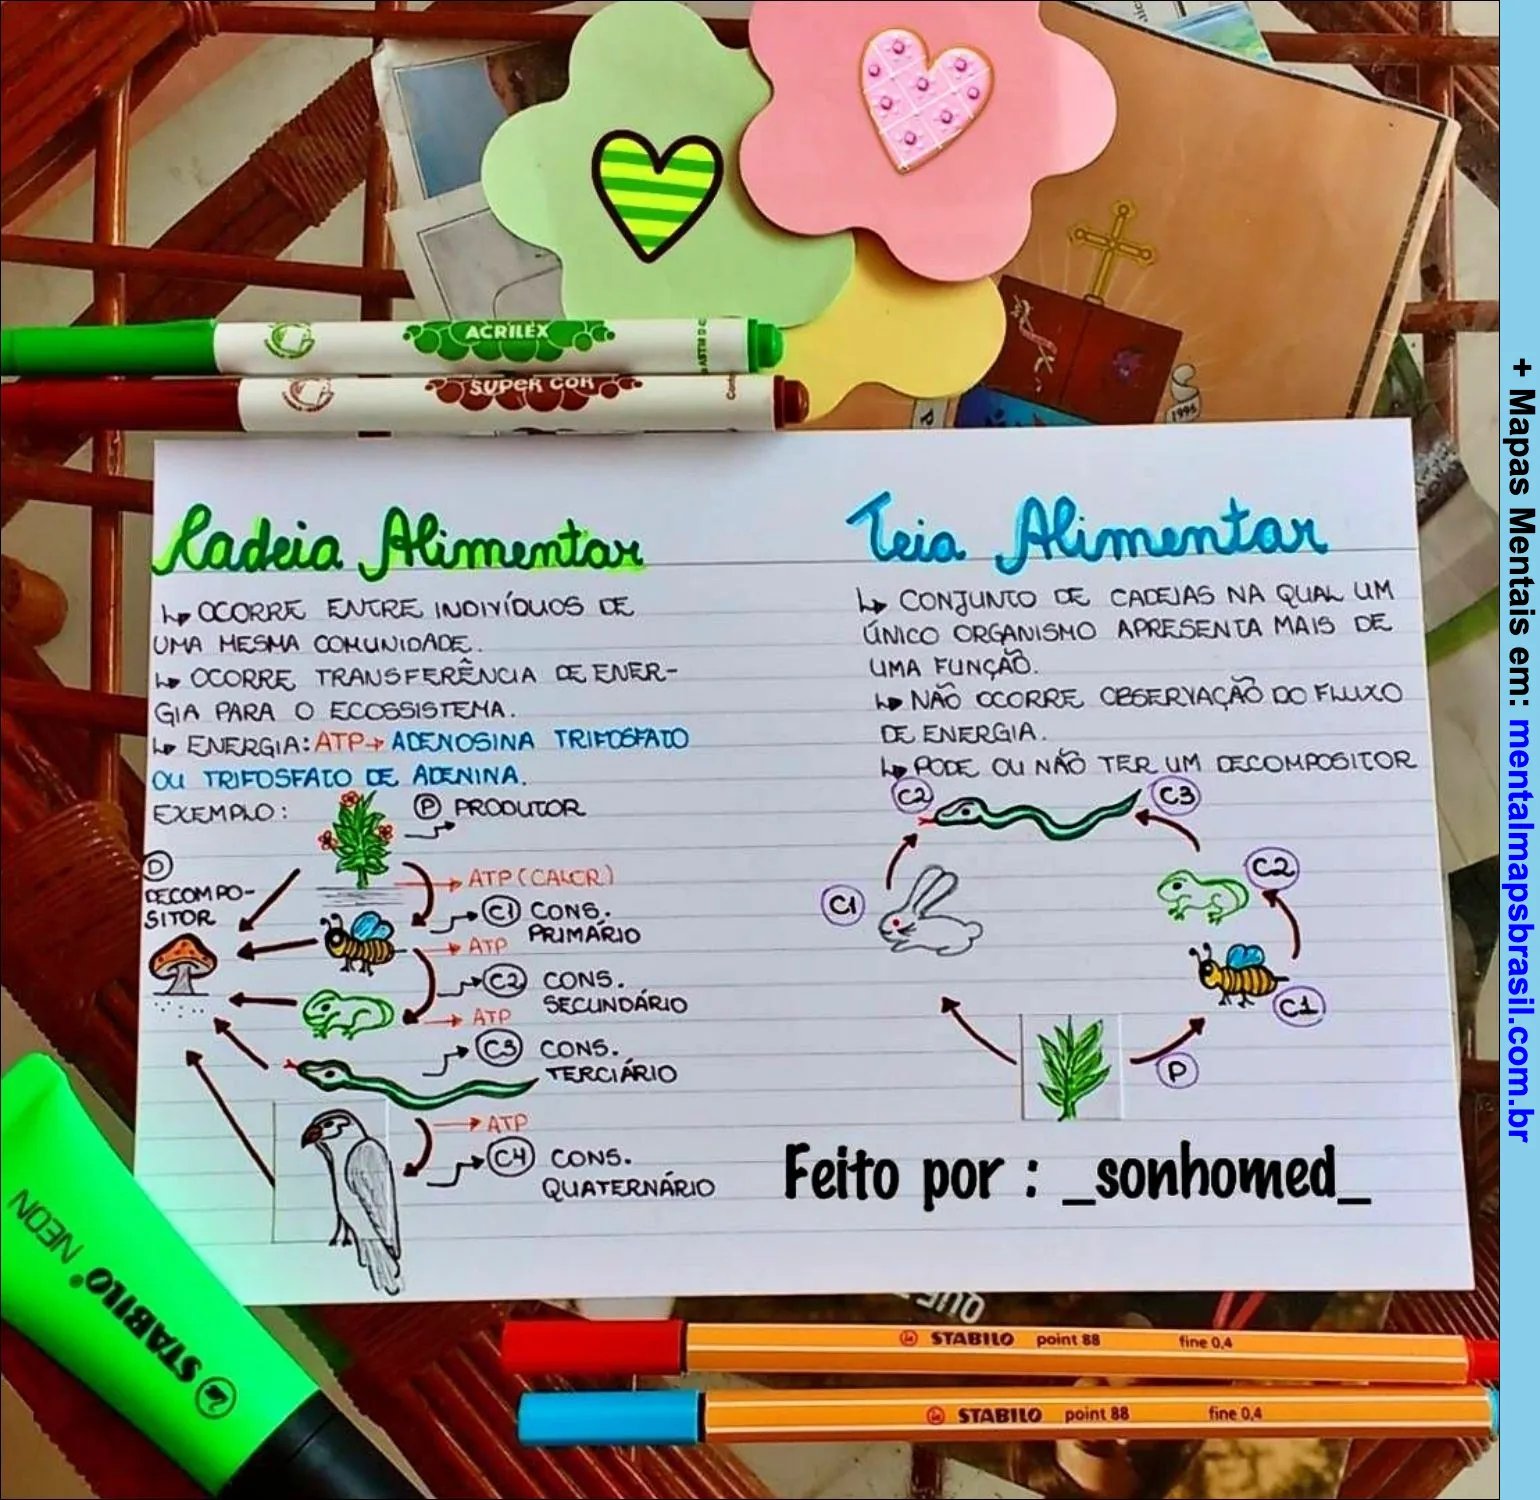 ACRILEX
SUPER COR
1995
Cadeia Alimentar
↳ OCORRE ENTRE INDIVÍDUOS DE
UMA MESMA COMUNIDADE.
↳ OCORRE TRANSFERÊNCIA DE ENER-
GIA PARA O ECOSSISTEMA.
↳ ENERGIA: ATP → ADENOSINA TRIFOSFATO
OU TRIFOSFATO DE ADENINA.
EXEMPLO:
P PRODUTOR
D
DECOMPO-
SITOR
ATP (CALOR)
C1 CONS.
PRIMÁRIO
ATP
C2 CONS.
SECUNDÁRIO
ATP
C3 CONS.
TERCIÁRIO
ATP
C4 CONS.
QUATERNÁRIO
Teia Alimentar
↳ CONJUNTO DE CADEIAS NA QUAL UM
ÚNICO ORGANISMO APRESENTA MAIS DE
UMA FUNÇÃO.
↳ NÃO OCORRE OBSERVAÇÃO DO FLUXO
DE ENERGIA.
↳ PODE OU NÃO TER UM DECOMPOSITOR
C2
C3
C1
C2
C1
P
Feito por : _sonhomed_
STABILO NEON
STABILO point 88 fine 0,4
STABILO point 88 fine 0,4
+ Mapas Mentais em: mentalmapsbrasil.com.br